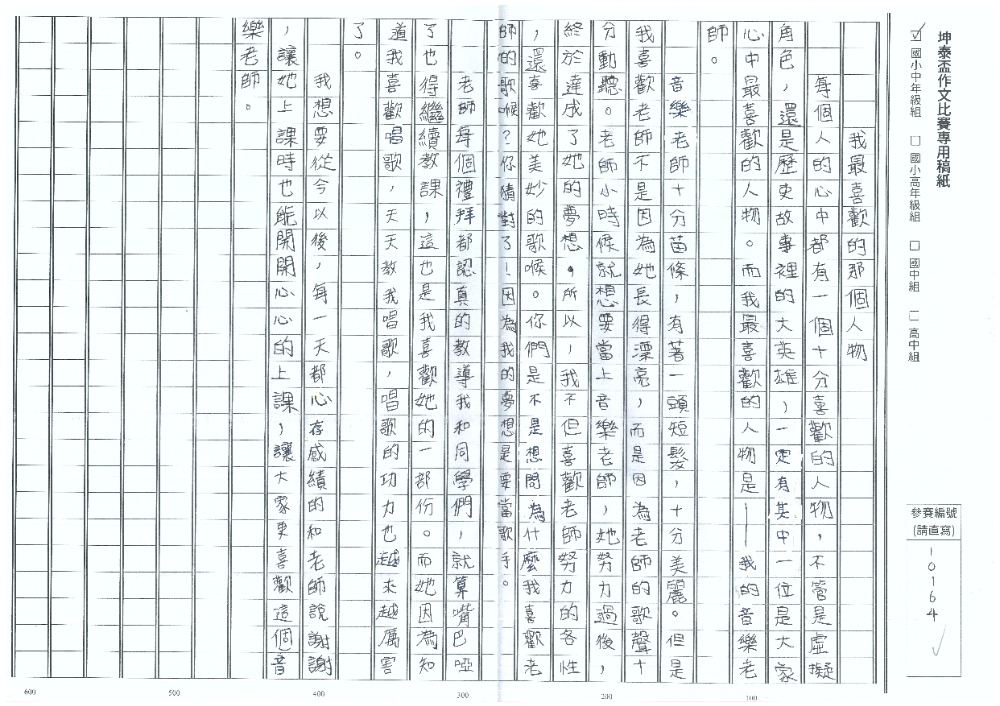 坤泰盃作文比賽專用稿紙
☑國小中年級組 □國小高年級組 □國中組 □高中組
參賽編號
(請直寫)
10164
我最喜歡的那個人物
每個人的心中都有一個十分喜歡的人物，不管是虛擬
角色，還是歷史故事裡的大英雄，一定有其中一位是大家
心中最喜歡的人物。而我最喜歡的人物是——我的音樂老
師。
音樂老師十分苗條，有著一頭短髮，十分美麗。但是
我喜歡老師不是因為她長得漂亮，而是因為老師的歌聲十
分動聽。老師小時候就想要當上音樂老師，她努力過後，
終於達成了她的夢想。所以，我不但喜歡老師努力的各性
，還喜歡她美妙的歌喉。你們是不是想問為什麼我喜歡老
師的歌喉？你猜對了！因為我的夢想是要當歌手。
老師每個禮拜都認真的教導我和同學們，就算嘴巴啞
了也得繼續教課，這也是我喜歡她的一部份。而她因為知
道我喜歡唱歌，天天教我唱歌，唱歌的功力也越來越厲害
了。
我想要從今以後，每一天都心存感績的和老師說謝謝
，讓她上課時也能開開心心的上課，讓大家更喜歡這個音
樂老師。
100
200
300
400
500
600